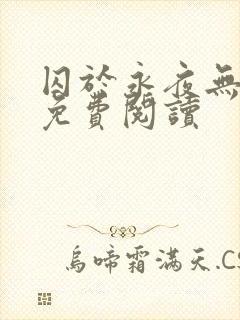 囚於永夜無
免費閱讀
烏啼霜滿天.CS